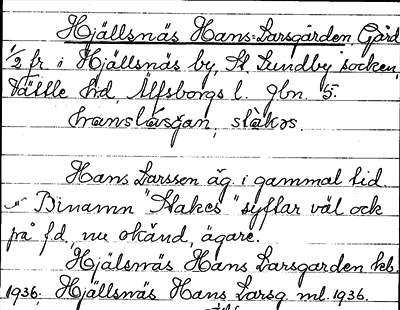 Hjällsnäs Hans-Larsgården Gård
1/2 fr i Hjällsnäs by, St. Lundby socken,
Vättle hrd, Älfsborgs l. gbn. 5.
hanslásgan, slakəs.
Hans Larssen äg. i gammal tid.
-"- Binamn "Slakes" syftar väl ock
på f.d., nu okänd, ägare.
Hjälsnäs Hans Larsgarden kb.
1936; Hjällsnäs Hans Larsg. ml. 1936.